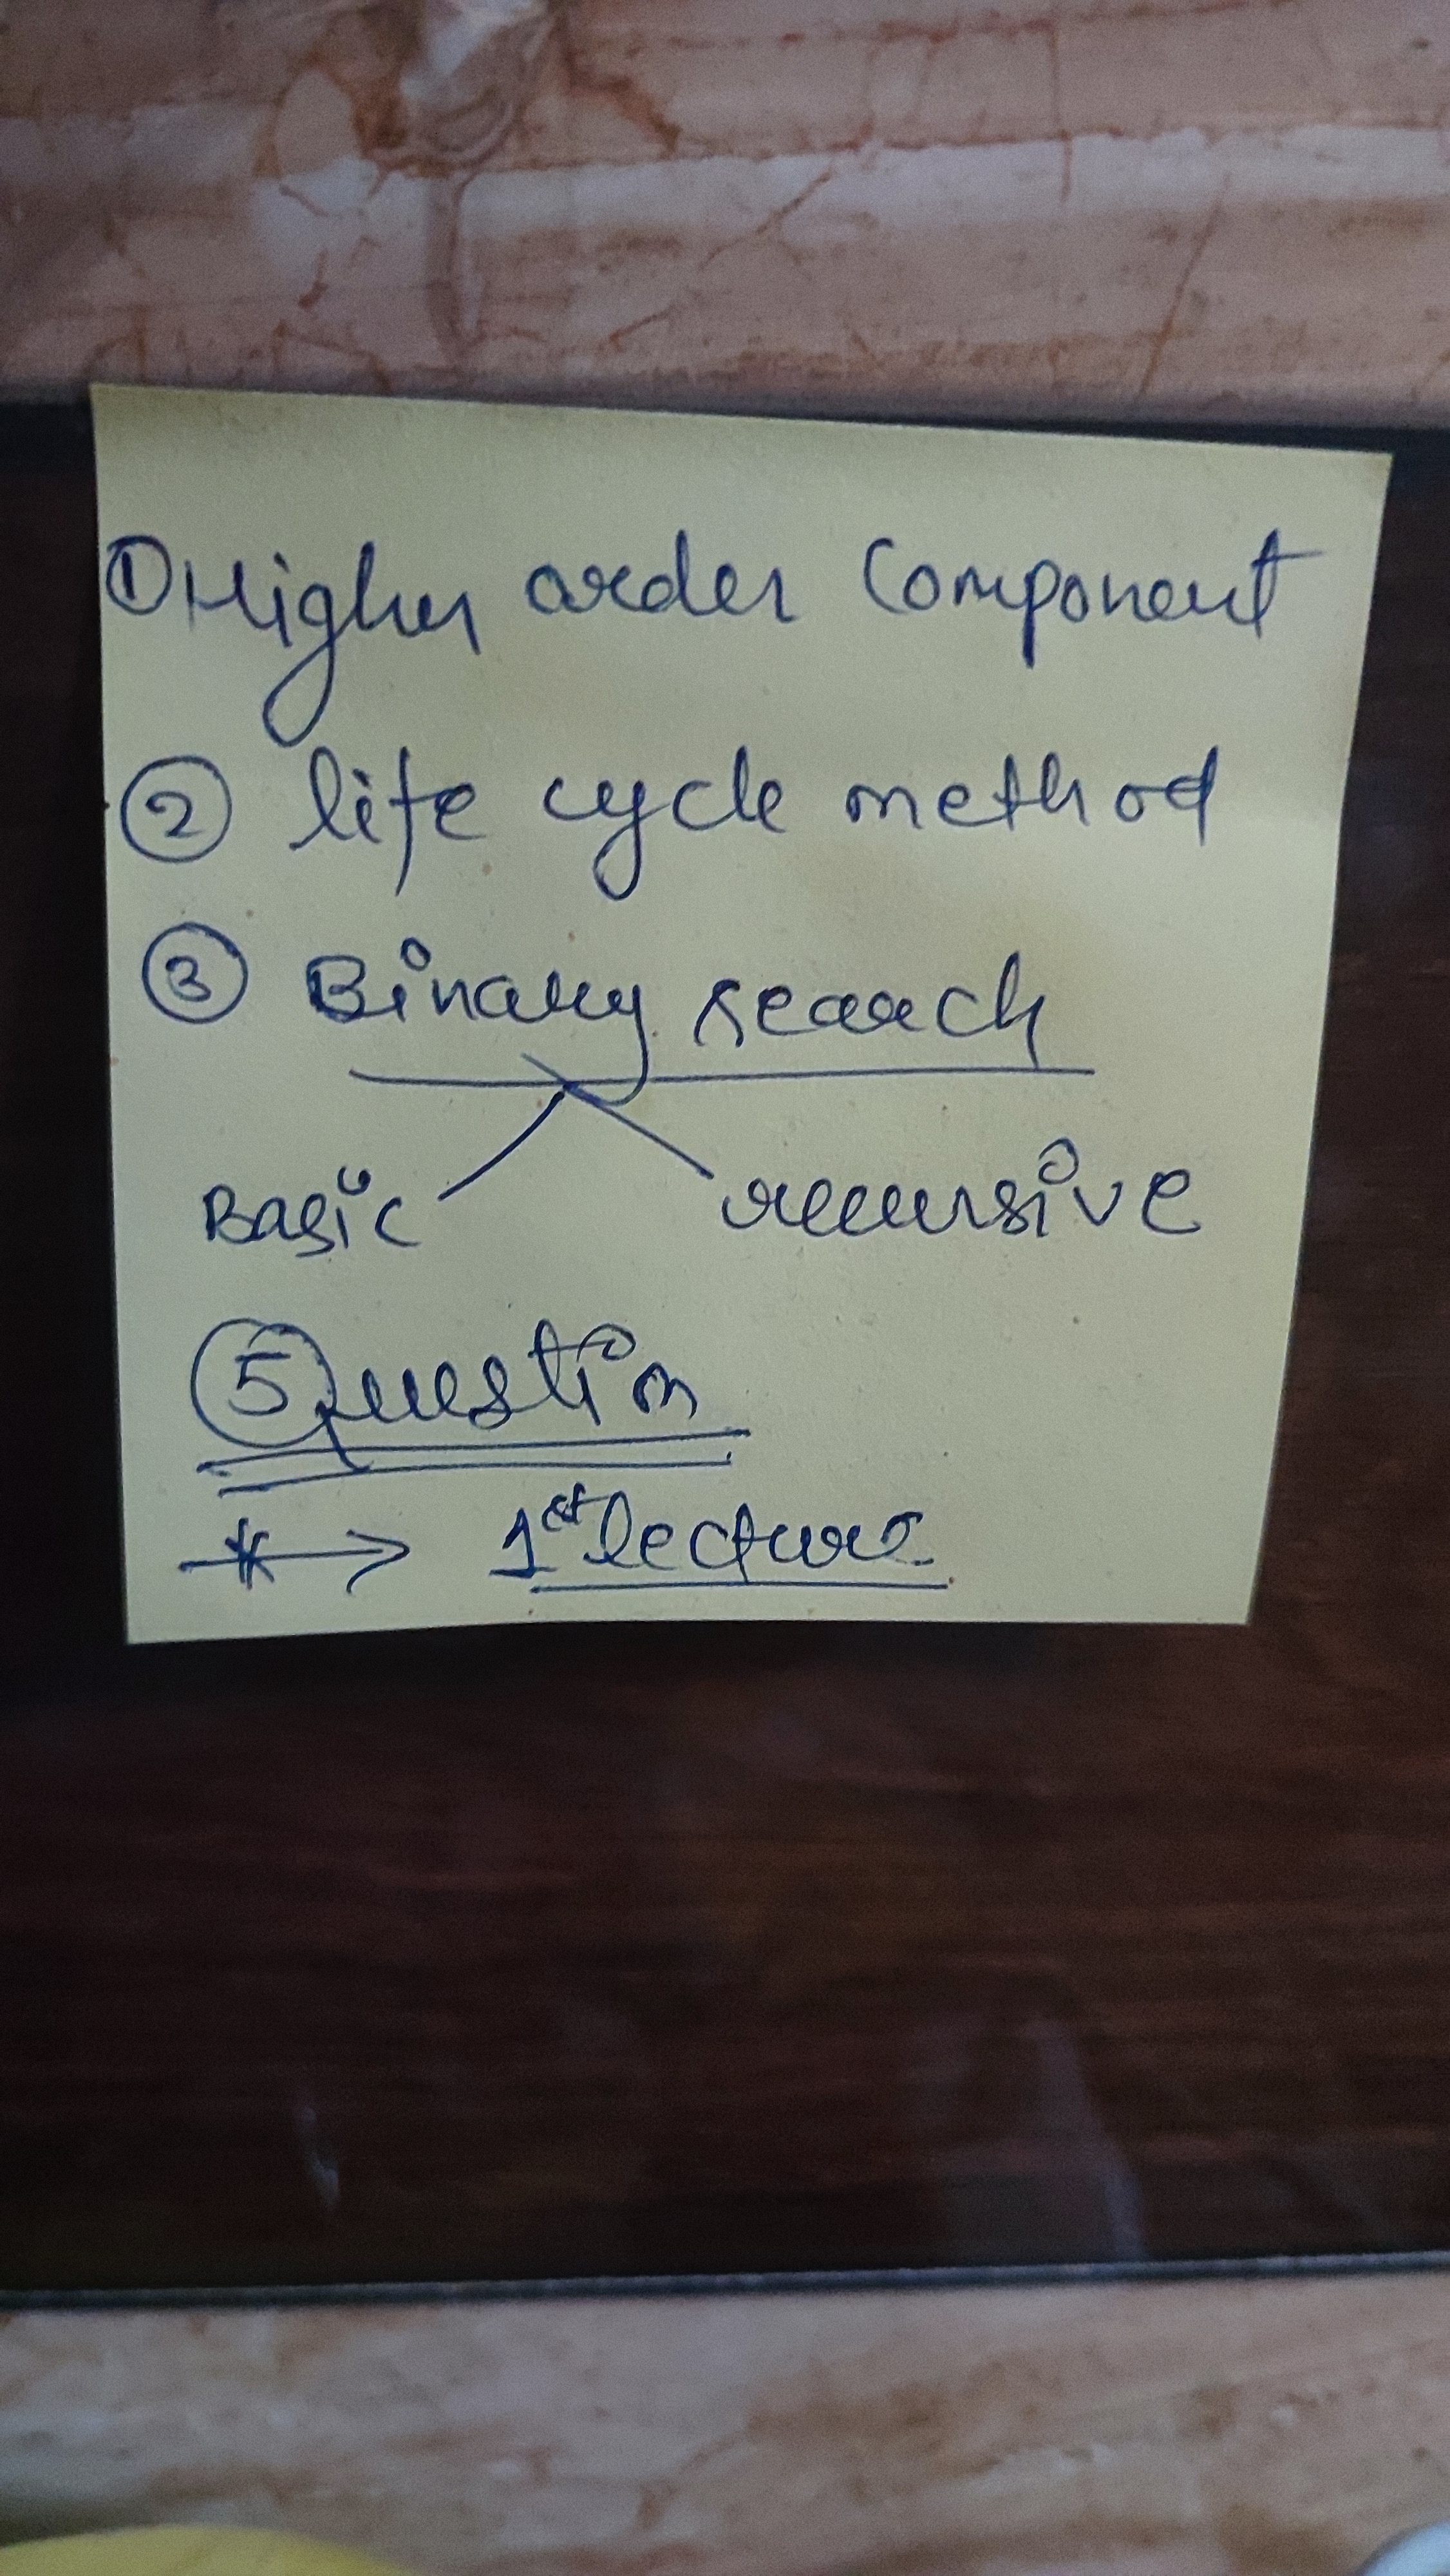 ① Higher order Component
② life cycle method
③ Binary search
Basic recursive
⑤ Question
* → 1st lecture